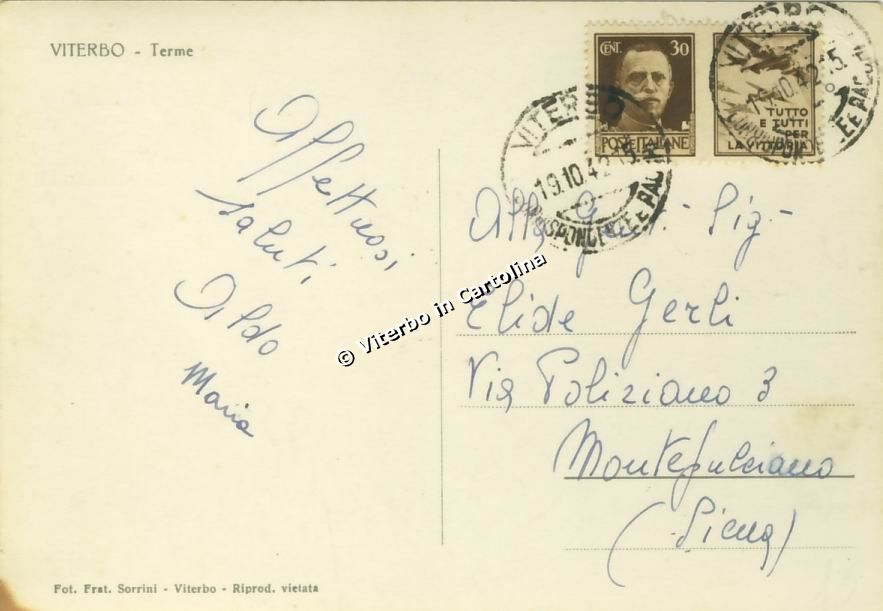 VITERBO - Terme
Affettuosi
saluti
Aldo
Maria
CENT. 30
POSTE ITALIANE
TUTTO
E TUTTI
PER
LA VITTORIA
VITERBO
19.10.42.15
CORRISPONDENZE E PACCHI
VITERBO
19.10.42.15
CORRISPONDENZE E PACCHI
Alla Gen. Sig-
Elide Gerli
Via Poliziano 3
Montepulciano
(Siena)
© Viterbo in Cartolina
Fot. Frat. Sorrini - Viterbo - Riprod. vietata